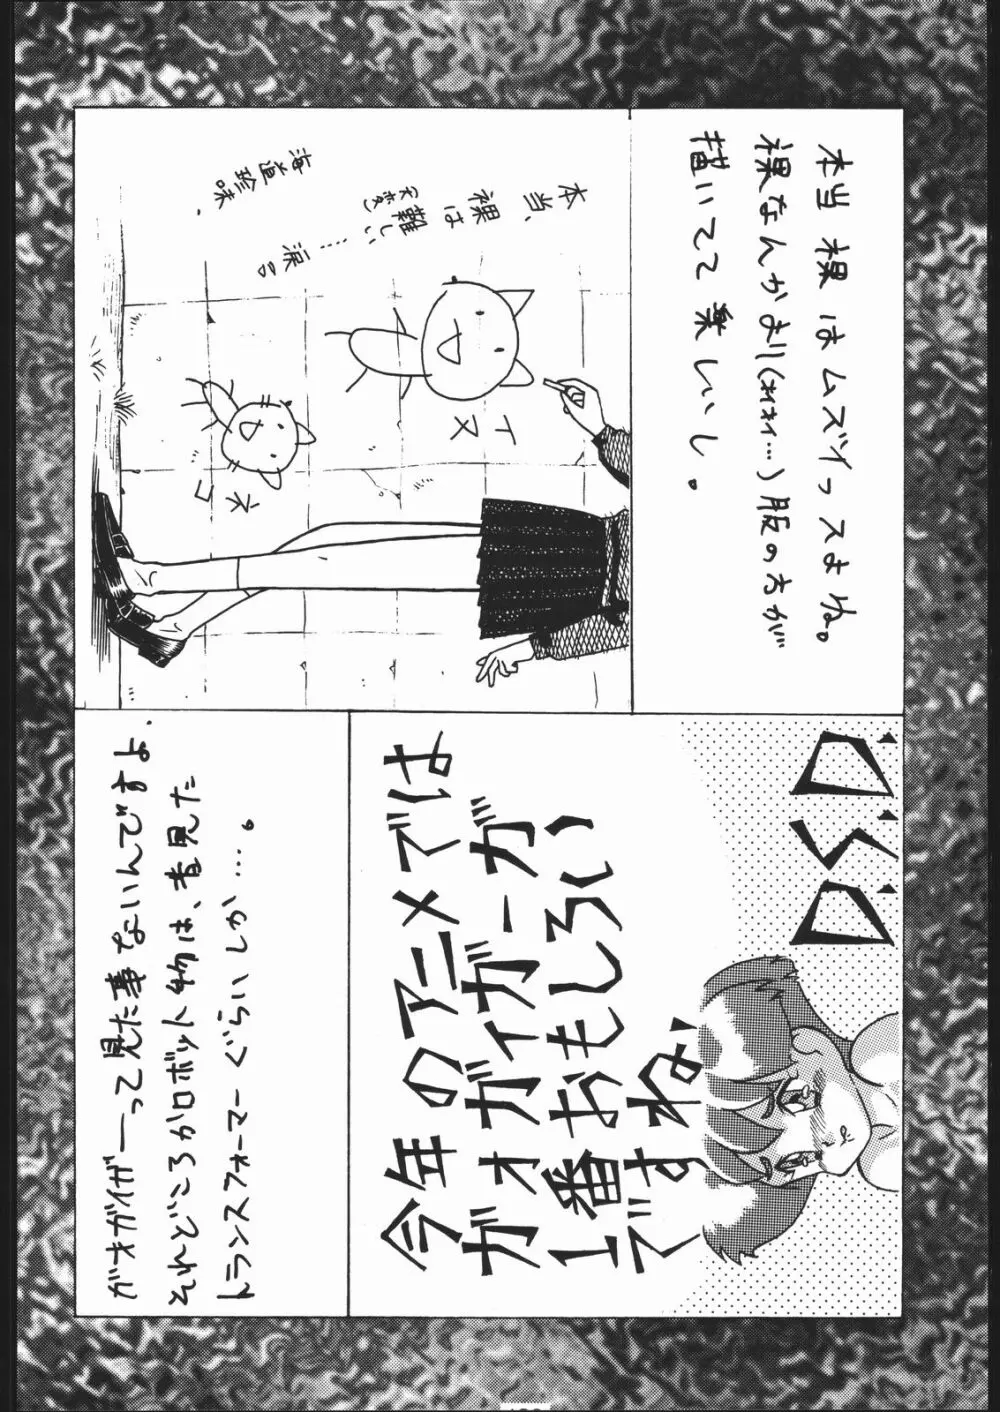 本当裸はムズイっスよね。
裸なんかより(オイオイ…)服の方が
描いてて楽しいし。
本当、
裸は
難しい……涙。
(大変)
海道珍味.
イヌ
ネコ
D.S.D.
今年のアニメでは
ガオガイガーが
1番おもしろい
ですね
ガオガイガーって見た事ないんですよ.
それどころかロボット物は、昔見た
トランスフォーマーぐらいしか…。